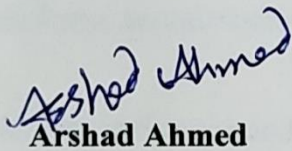 Arshad Ahmed
Arshad Ahmed